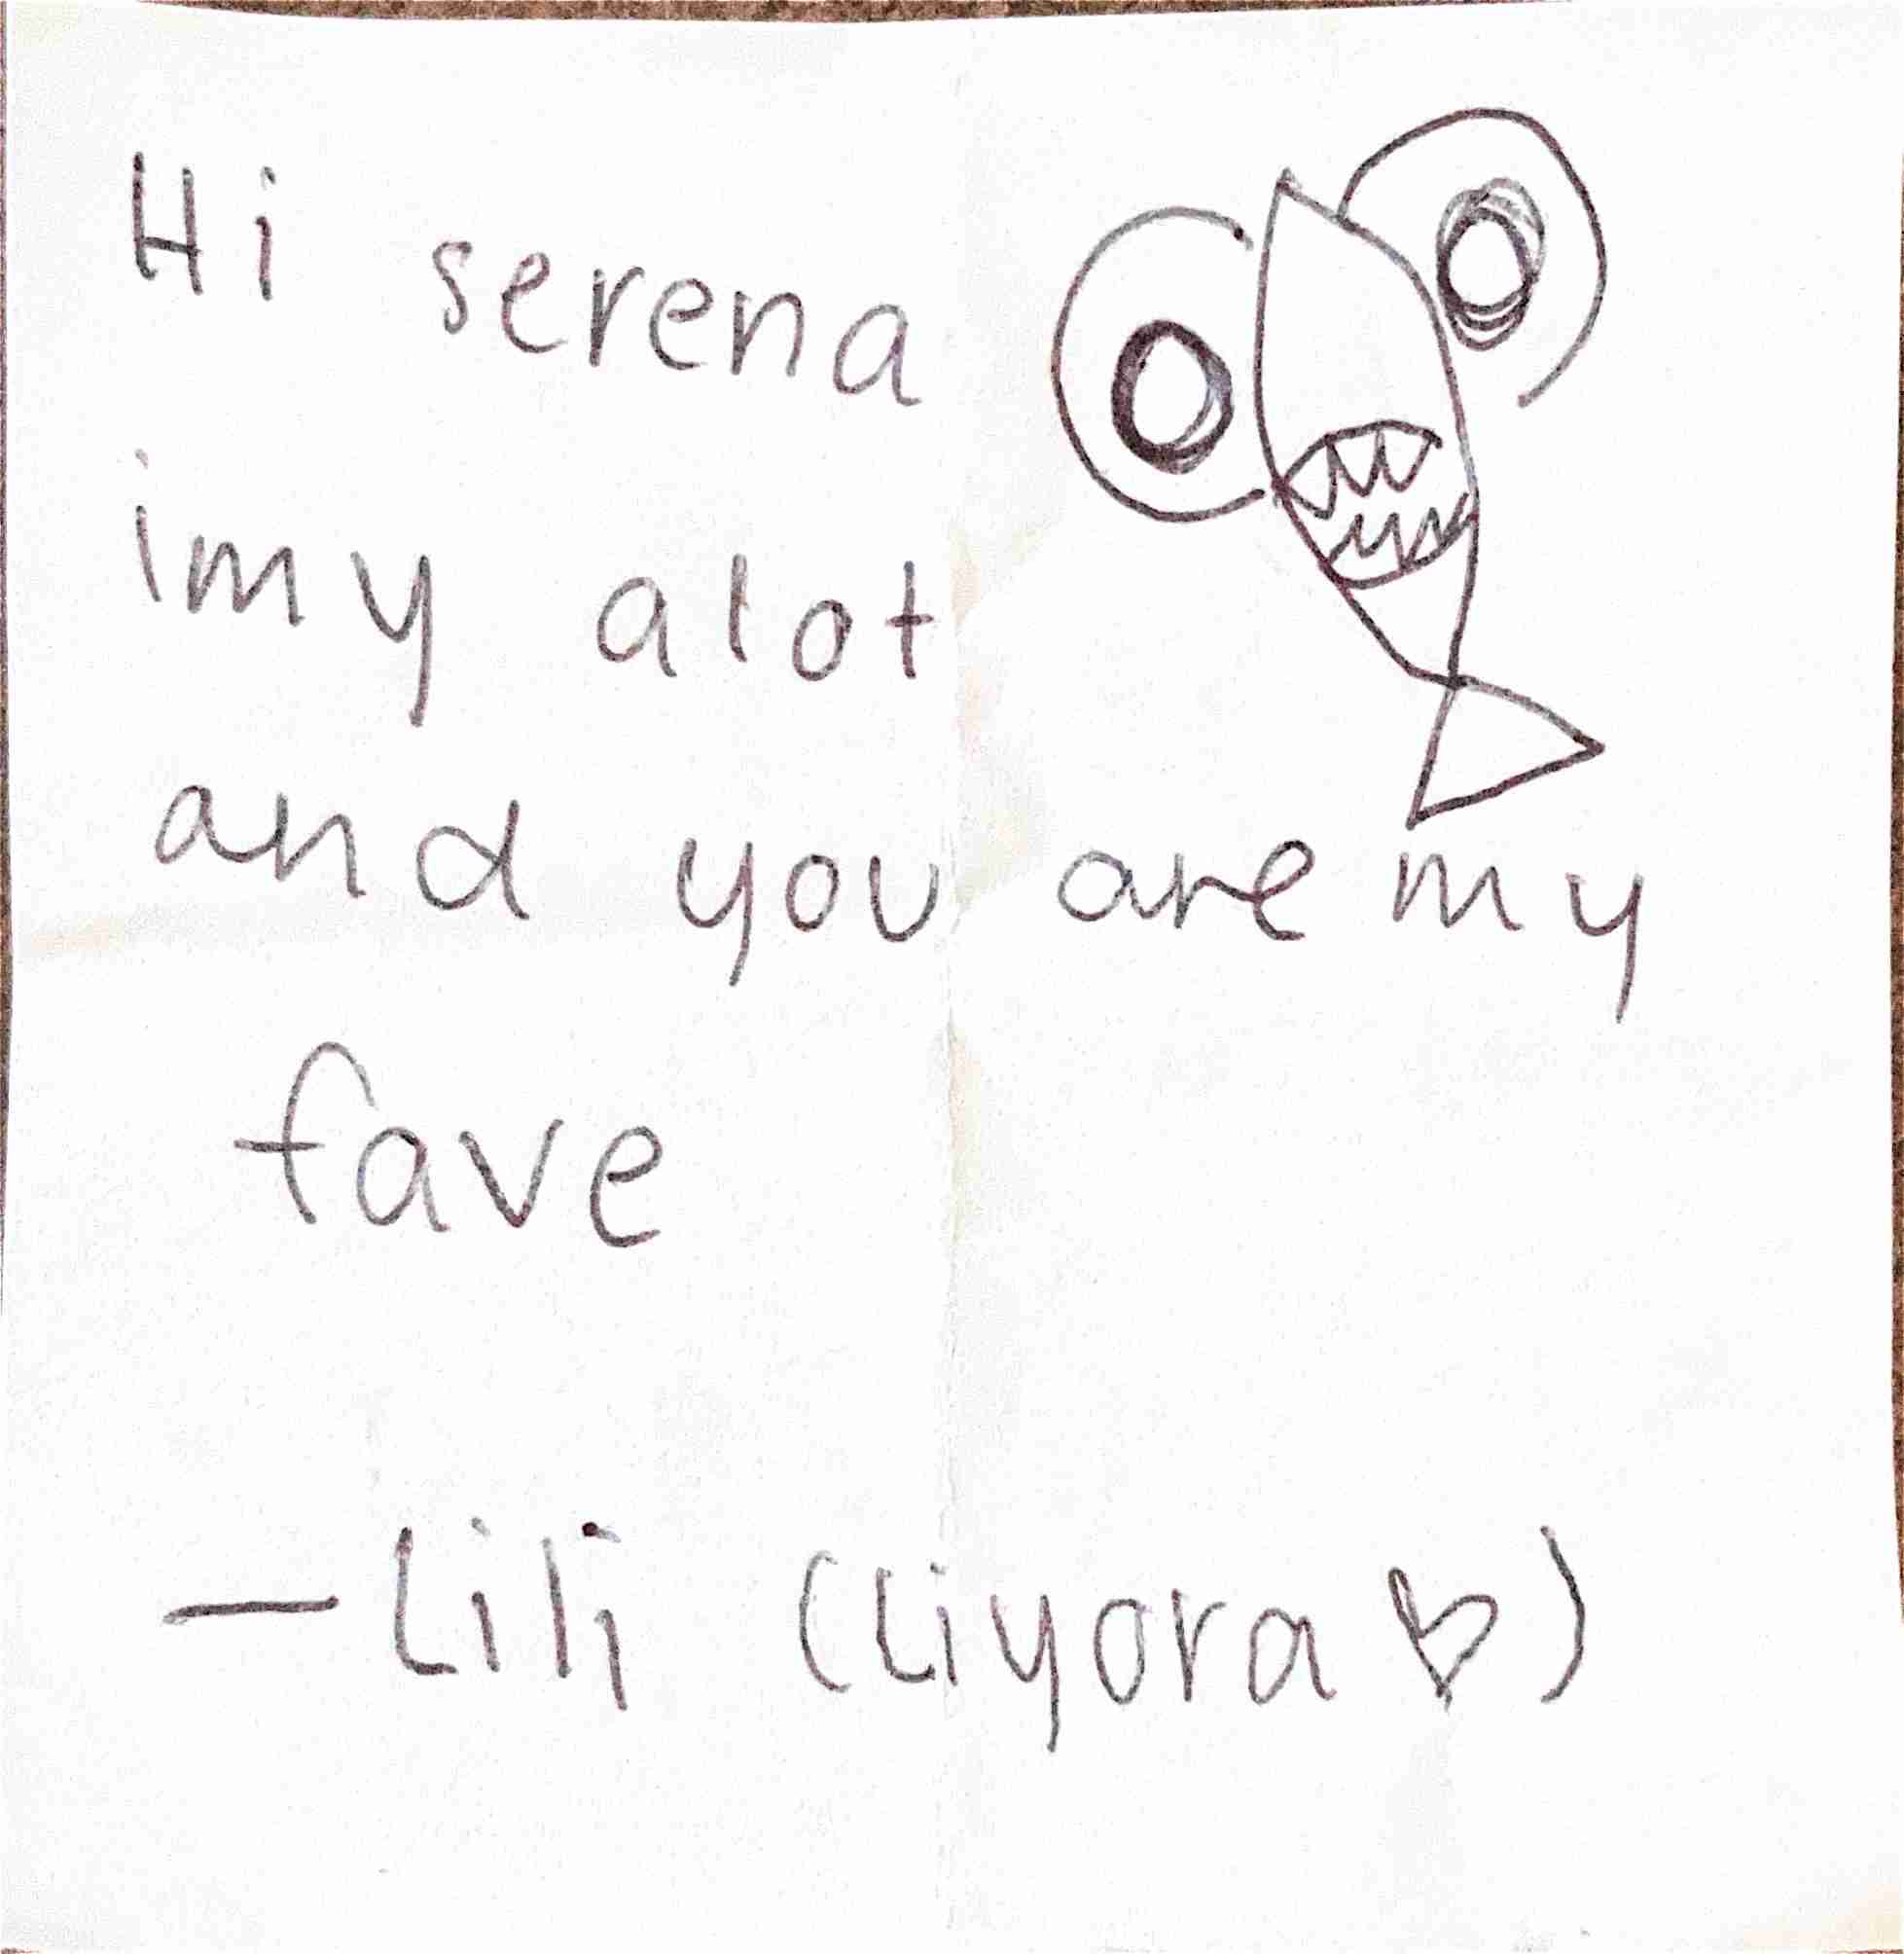 Hi serena
imy alot
and you are my
fave
— Lili (Liyora ♡)